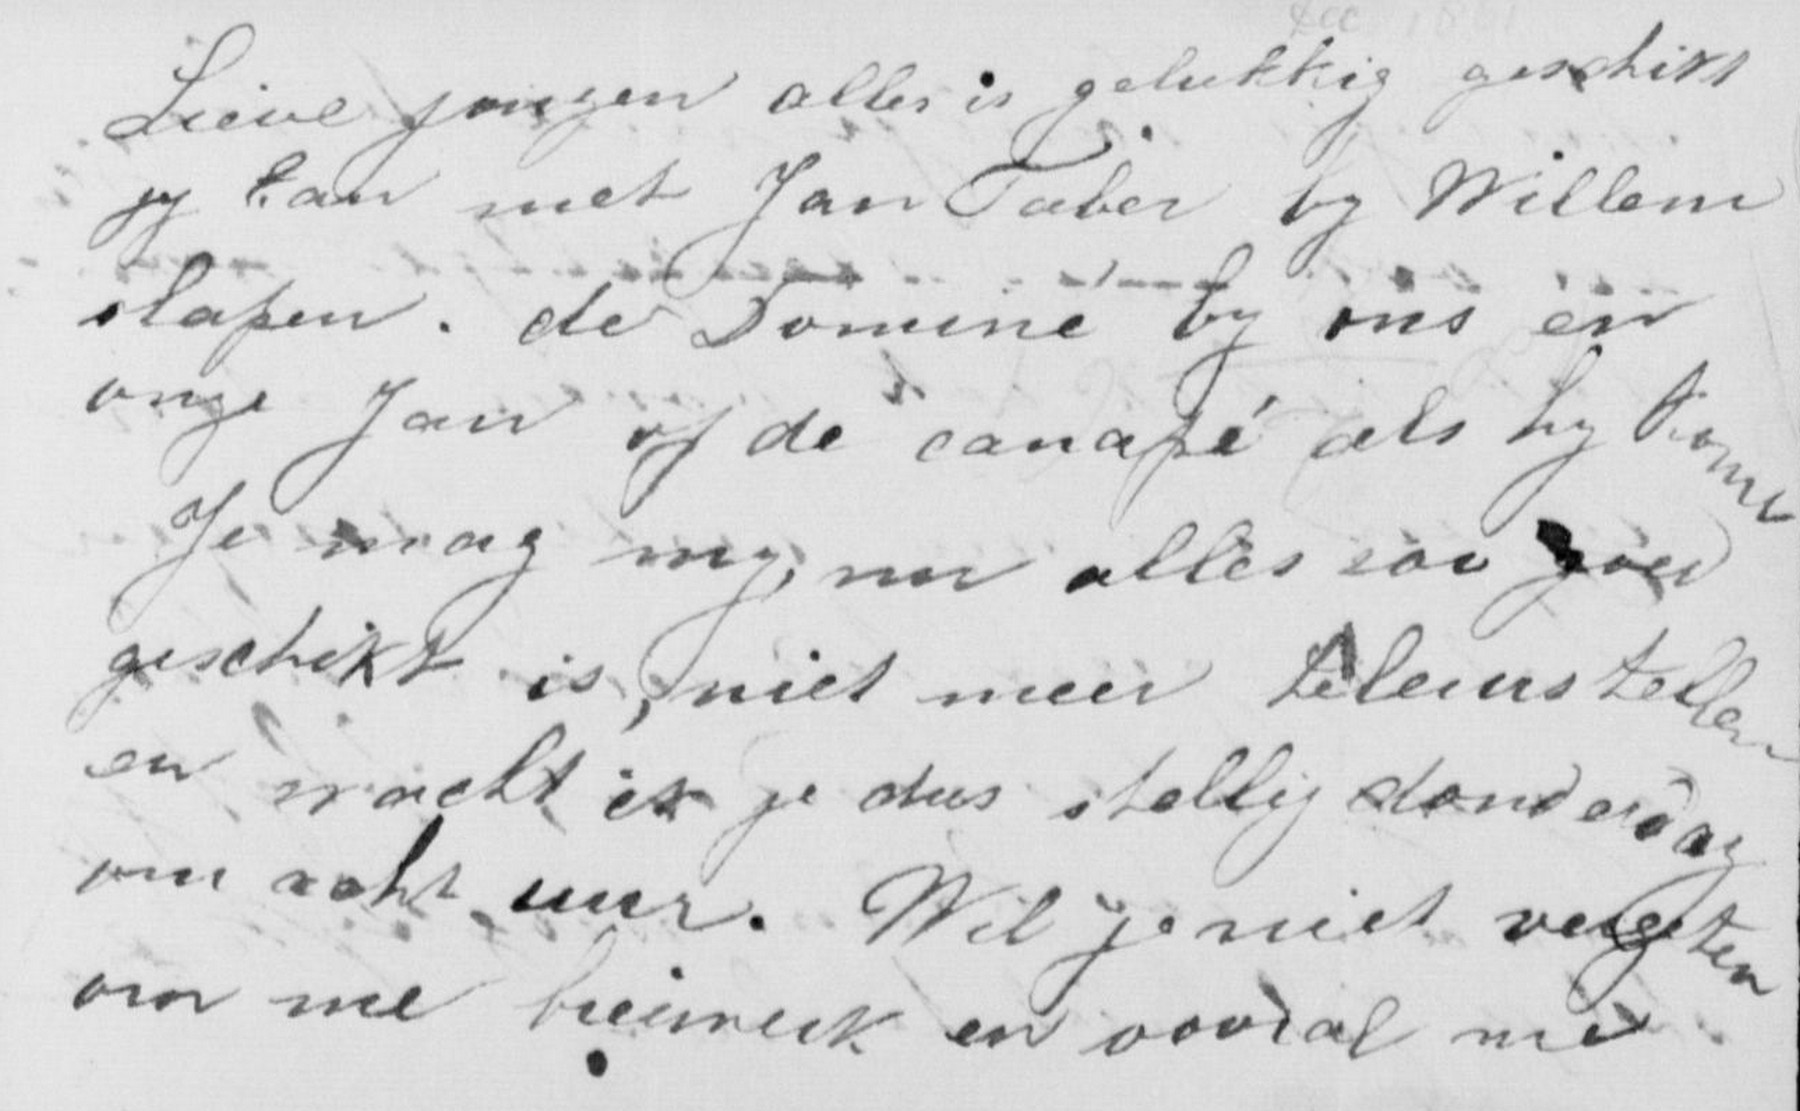 Lieve jongen alles is gelukkig geschikt
jy kan met Jan Taber by Willem
slapen. de Dominé by ons en
onze Jan op de canapé als hy komt
Je mag my, nu alles zoo goed
geschikt is, niet meer teleurstellen
en wacht ik je dus stellig donderdag
om acht uur. Wil je niet vergeten
om me breiwerk en vooral me